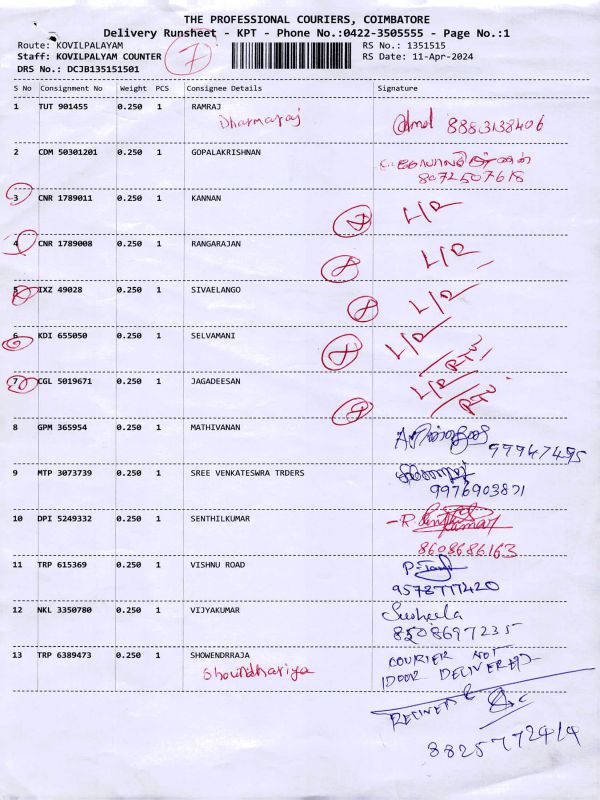 THE PROFESSIONAL COURIERS, COIMBATORE
Delivery Runsheet - KPT - Phone No.:0422-3505555 - Page No.:1
Route: KOVILPALAYAM RS No.: 1351515
Staff: KOVILPALYAM COUNTER 7 RS Date: 11-Apr-2024
DRS No.: DCJB135151501
S No Consignment No Weight PCS Consignee Details Signature
1 TUT 901455 0.250 1 RAMRAJ
Dharmaraj 8883138406
2 CDM 50301201 0.250 1 GOPALAKRISHNAN
8072507618
3 CNR 1789011 0.250 1 KANNAN L/R
4 CNR 1789008 0.250 1 RANGARAJAN L/R
5 IXZ 49028 0.250 1 SIVAELANGO L/R
6 KDI 655050 0.250 1 SELVAMANI L/R
7 CGL 5019671 0.250 1 JAGADEESAN L/R
8 GPM 365954 0.250 1 MATHIVANAN
99947495
9 MTP 3073739 0.250 1 SREE VENKATESWRA TRDERS
9976903871
10 DPI 5249332 0.250 1 SENTHILKUMAR
8608686163
11 TRP 615369 0.250 1 VISHNU ROAD
9578777420
12 NKL 3350780 0.250 1 VIJYAKUMAR Susheela
8508697235
13 TRP 6389473 0.250 1 SHOWENDRRAJA COURIER NOT
Showndhariya DOOR DELIVERED
8825772414